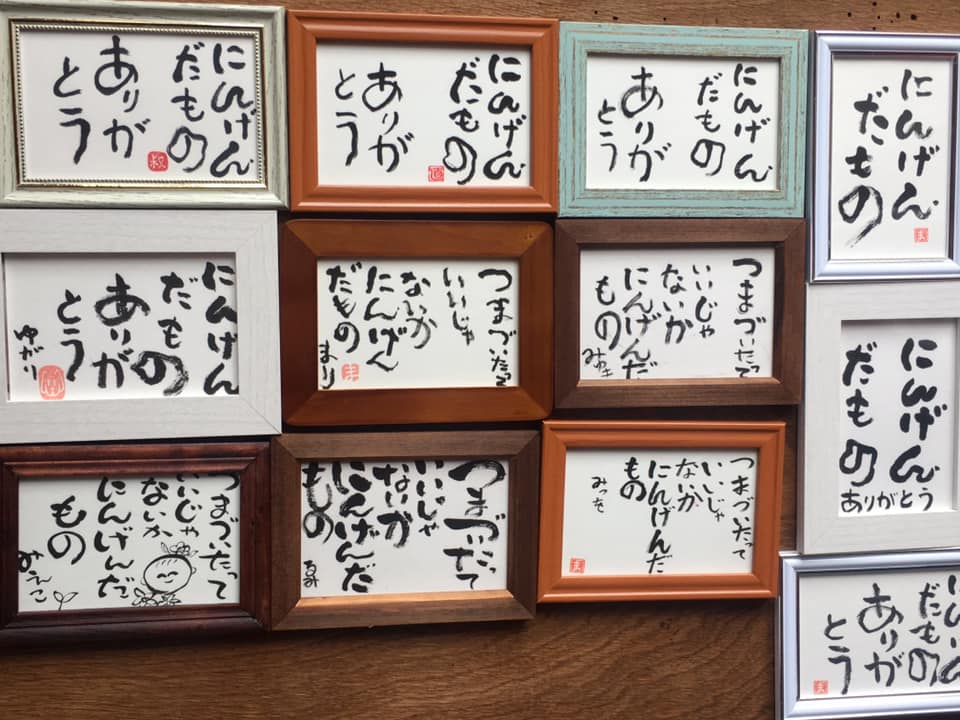 にんげん
だもの
ありが
とう
にんげん
だもの
ありが
とう
にんげん
だもの
ありが
とう
にんげん
だもの
にんげん
だもの
ありが
とう
ゆがり
つまづいたって
いいじゃ
ないか
にんげん
だもの
まり
つまづいたって
いいじゃ
ないか
にんげんだ
もの
みゆき
にんげん
だもの
ありがとう
つまづいたって
いいじゃ
ないか
にんげんだ
もの
みえこ
つまづいたって
いいじゃ
ないか
にんげんだ
もの
つまづいたって
いいじゃ
ないか
にんげんだ
もの
みっち
にんげん
だもの
ありが
とう